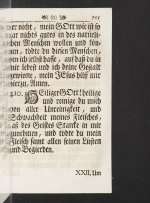 ❀ (o) ❀
mein GOtt wie ist so
gar nichts gutes in des natürli-
chen Menschen wollen und kön-
nen, tödte du diesen Menschen,
ich selbst hasse, auf daß du in
mir lebest und ich deine Gestalt
gewinne, mein JEsus hilf mir
hierzu, Amen.
210. Heiliger GOtt! heilige
und reinige du mich
von aller Unreinigkeit, und
Schwachheit meines Fleisches,
des Geistes Starke in mir
und tödte du mein
Fleisch samt allen seinen Lüsten
und Begierden.
XXII. Um